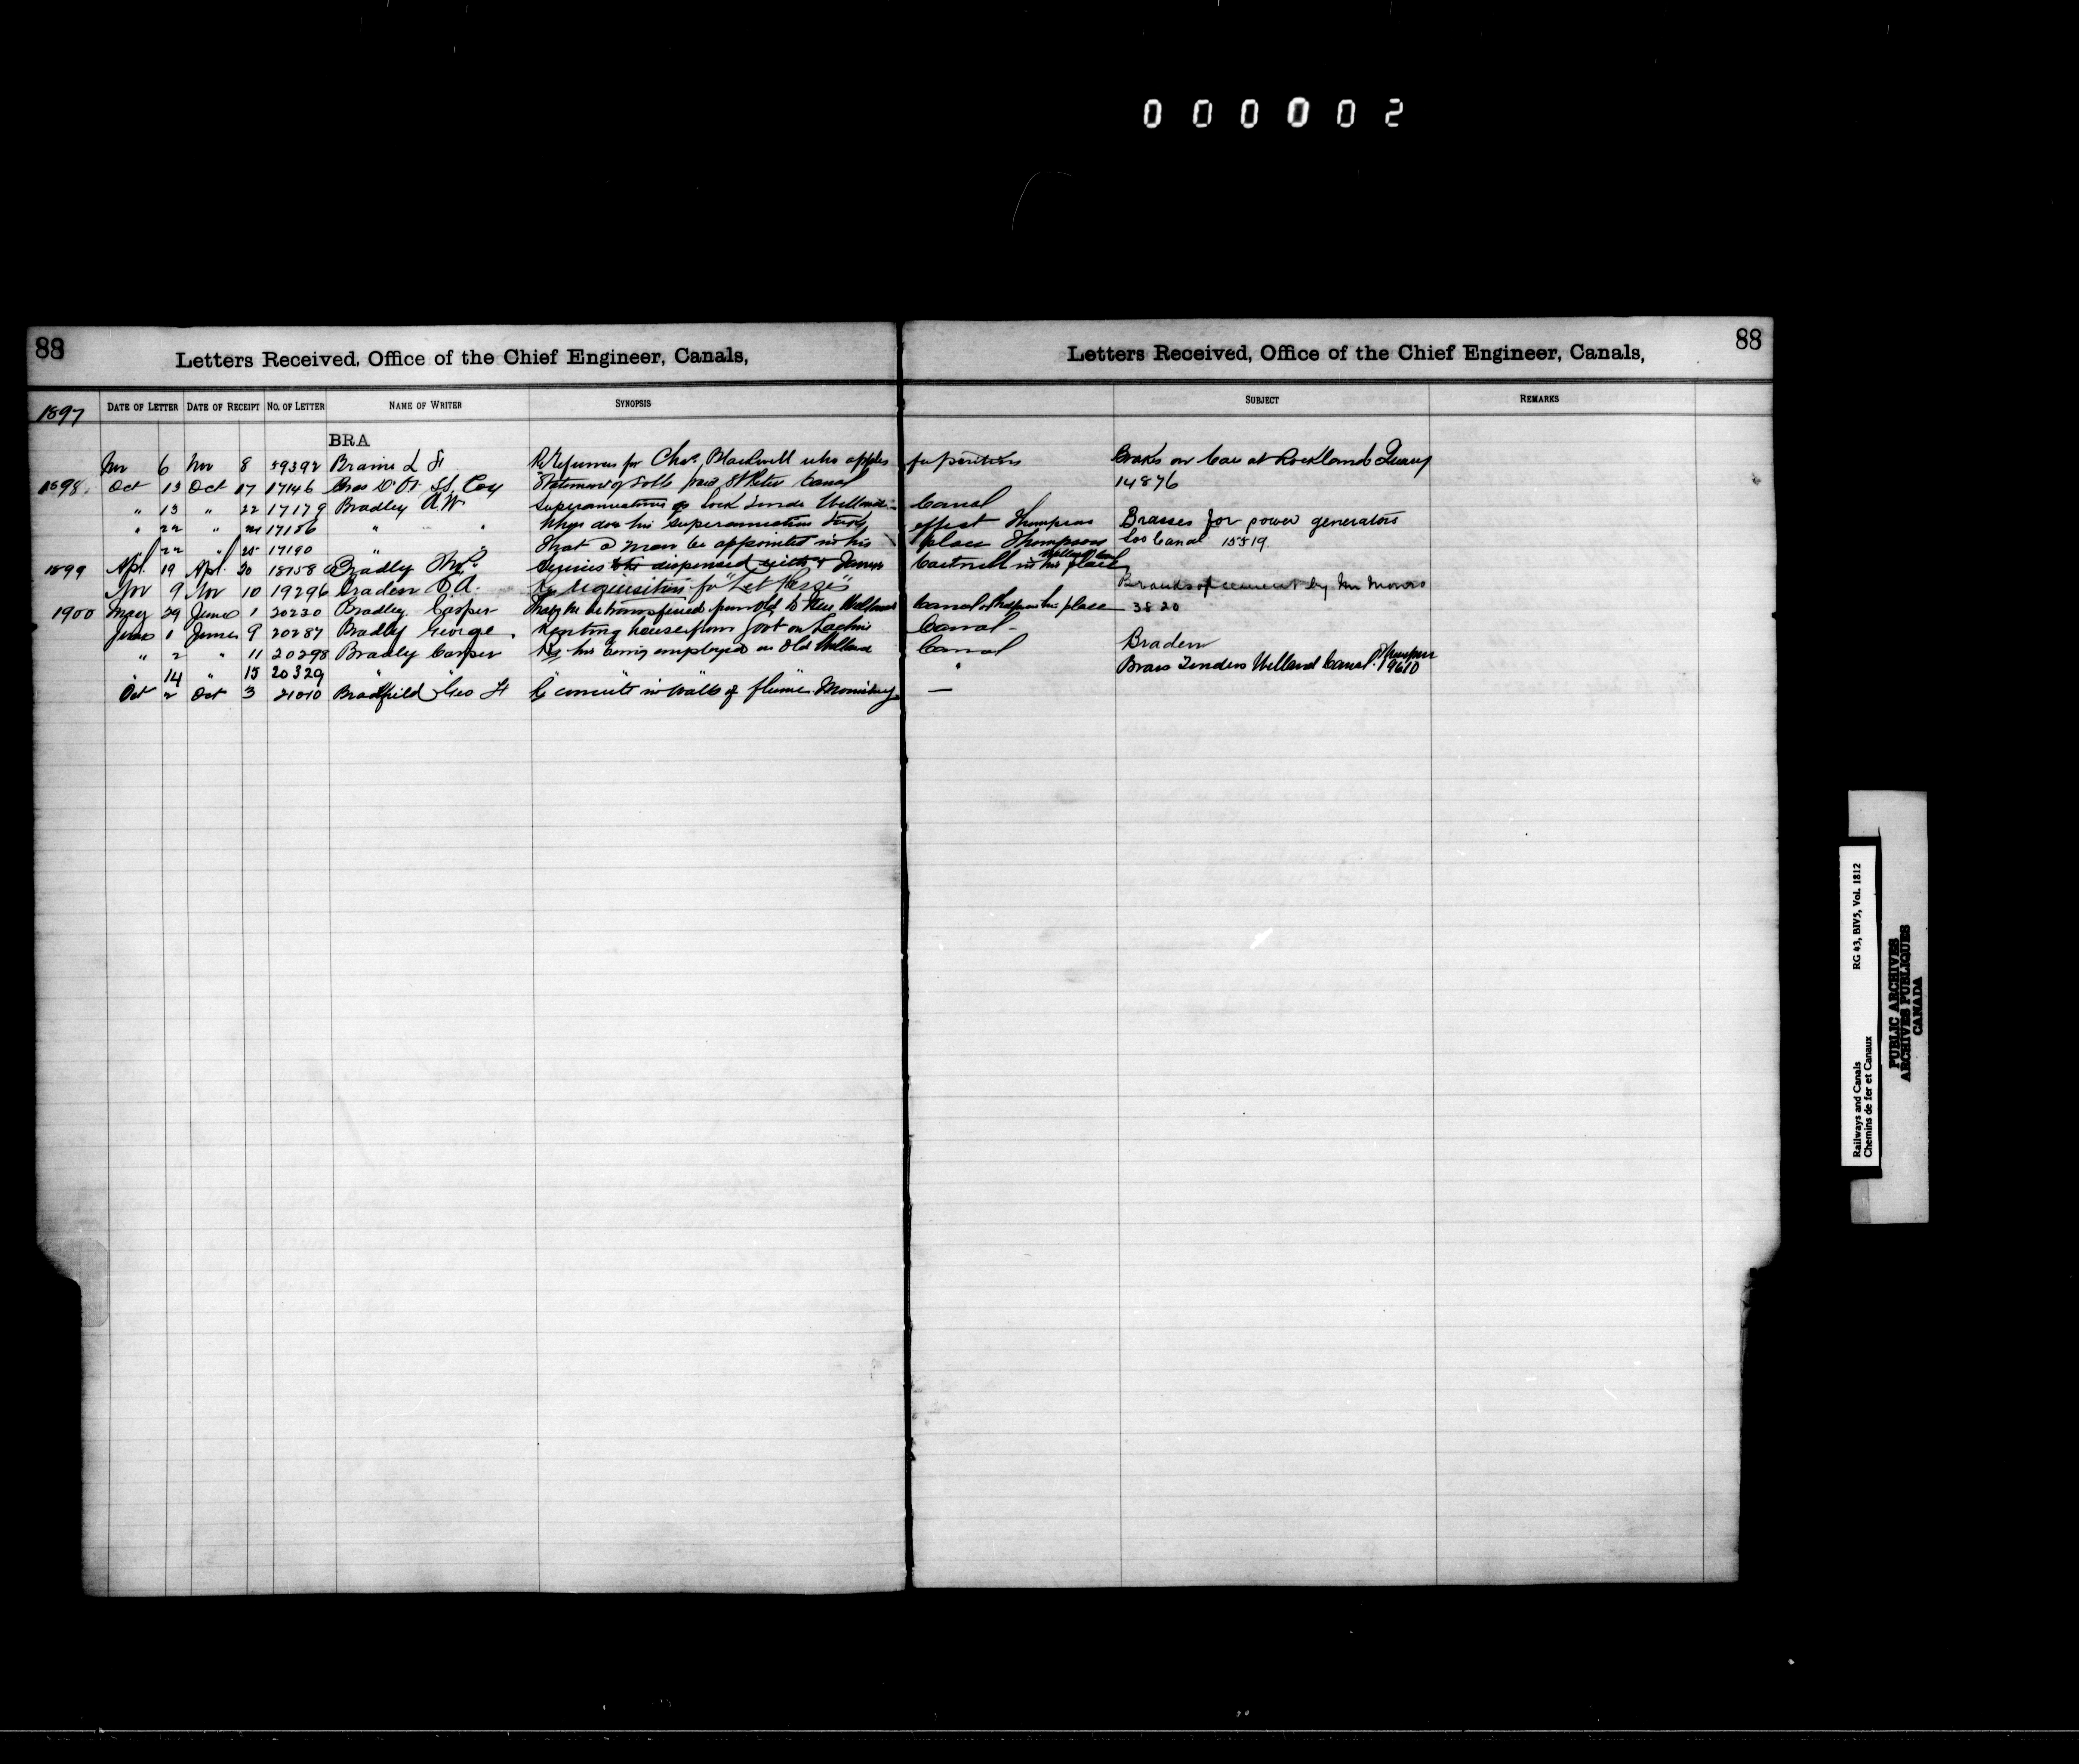 000002
88
Letters Received, Office of the Chief Engineer, Canals,
88
Letters Received, Office of the Chief Engineer, Canals,
1897 DATE OF LETTER DATE OF RECEIPT NO. OF LETTER NAME OF WRITER SYNOPSIS SUBJECT REMARKS
BRA
Nov 6 Nov 8 Braine L F References for Chas. Blackwell who applies for position Brakes on Cars at Rockland Quarry
1898. Oct 13 Oct 17 17146 Bras D'Or SS. Coy Statement of Tolls paid St Peters Canal 14876
" 13 " 22 17179 Bradley R.W. Superannuation as Lock Tender Welland Canal
" 22 " 24 17186 " " When does his superannuation take effect Thompson Brasses for power generators
" 22 " 25 17190 " " That a man be appointed in his place Thompson Soo Canal 15519
1899 Apl. 19 Apl. 20 18158 Bradley Services dispensed with & James in his place Welland Can
Nov 9 Nov 10 19296 Braden Re requisition for Brands of cement by Mr Munro
1900 May 29 June 1 20230 Bradley Casper That he be transferred from old to New Welland Canal his place 3820
June 1 June 9 20287 Bradley George Renting house from Govt on Lachine Canal
" 2 " 11 20298 Bradley Casper Re his being employed on Old Welland Canal Braden
" 14 " 15 20329 " " " Brass Tenders Welland Canal. Thompson 19610
Oct 2 Oct 3 21010 Bradfield Geo H Re concrete in walls of flume Morrisburg —
Railways and Canals RG 43, BIV5, Vol. 1812
Chemins de fer et Canaux
PUBLIC ARCHIVES
ARCHIVES PUBLIQUES
CANADA